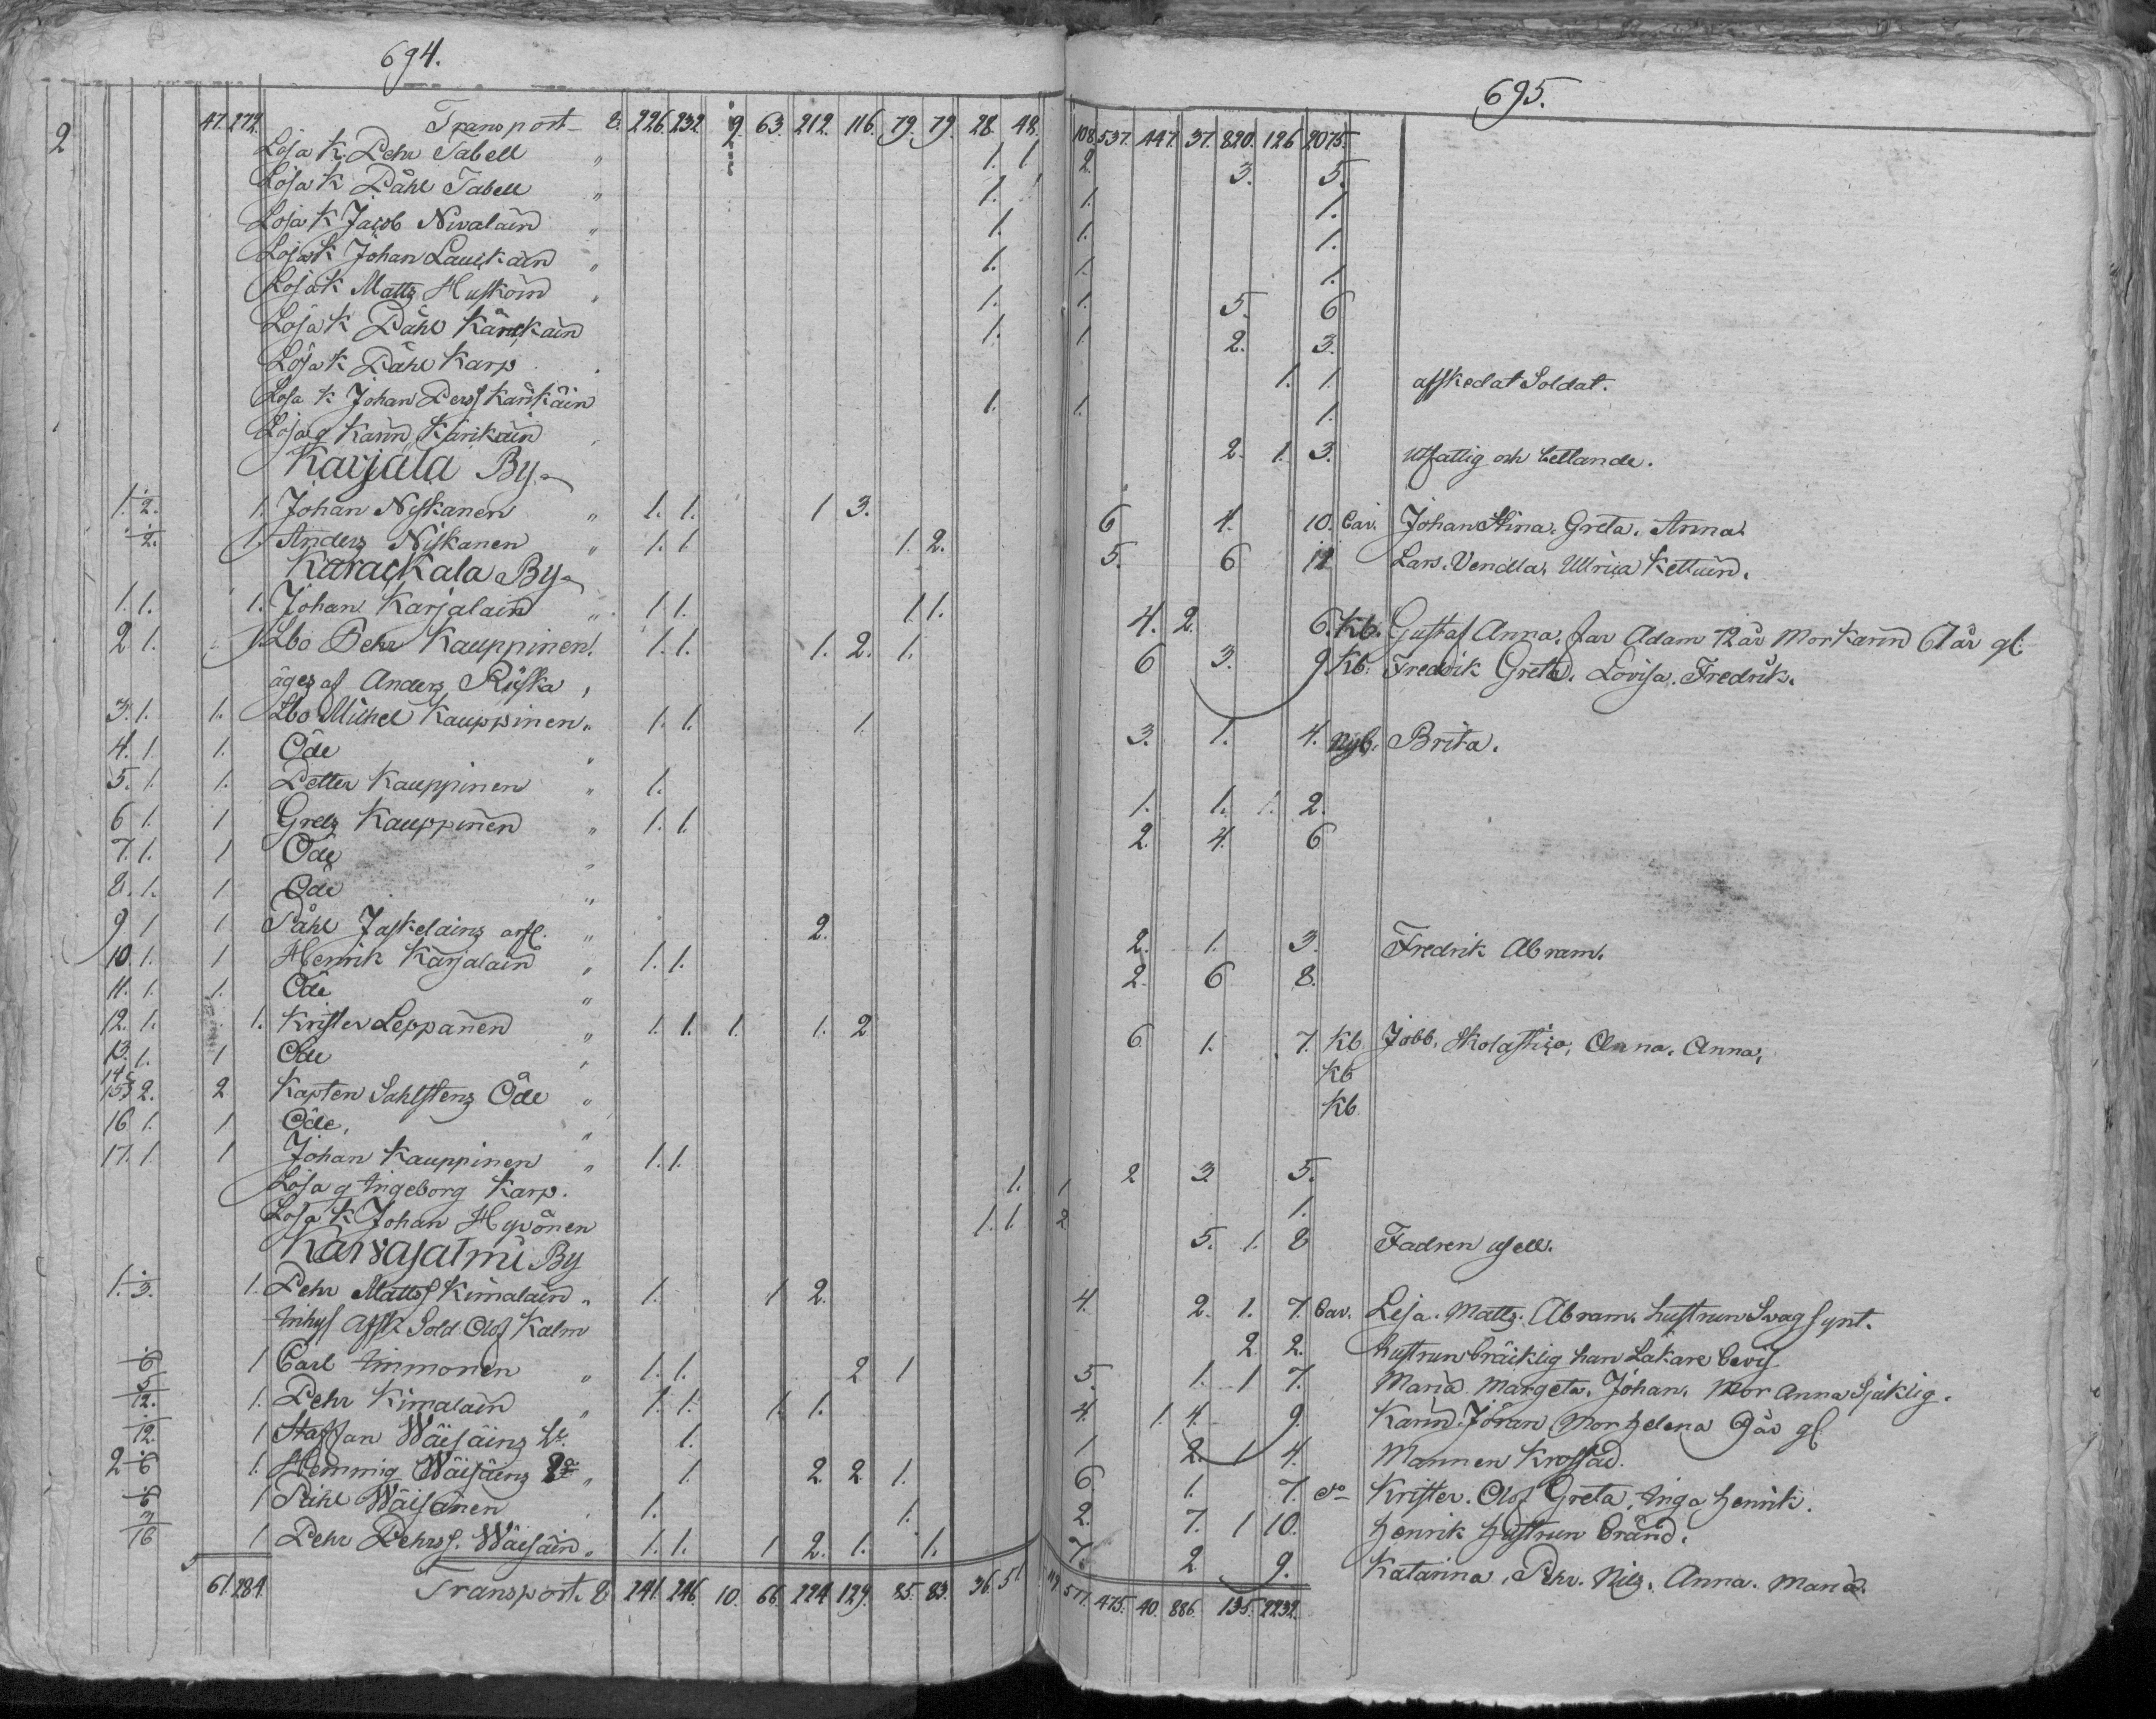 694.
2 47. 272. Transport 8. 226. 232. 9. 63. 212. 116. 79. 79. 28. 48.
Lösa K. Pehr Tabell " 1. 1.
Lösa K Påhl Tabell " 1.
Lösa K Jacob Nivalain " 1.
Lösa K Johan Laukain " 1.
Lösa K Matts " 1.
Lösa K Påhl 1.
Lösa K Påhl Karp
Lösa K Johan Perss Karikäin 1.
Lösa q Karin Karikain
Karjala By
1. 2. 1. Johan Niskanen " 1. 1. 1 3.
2. 1. Anders Niskanen " 1. 1. 1. 2.
Karackala By
1. 1. 1. Johan Karjalain " 1 1. 1 1.
2. 1. 1. Lbo Pehr Kauppinen 1. 1. 1. 2. 1.
äges af Anders Riska
3. 1. 1. Lbo Michel Kauppinen " 1. 1. 1.
4. 1 1. Öde "
5. 1. 1. Petter Kauppinen " 1.
6 1. 1 Grels Kauppinen " 1. 1.
7. 1. 1 Öde "
8. 1. 1 Öde "
9 1 1 Påhl Jaskelains arf. " 2.
10. 1. 1 Henrik Karjalain " 1. 1.
11. 1. 1. Öde "
12. 1. 1. Krister Leppänen " 1. 1. 1. 1. 2
13. 1. 1 Öde "
14
15 2. 2 Kapten Sahlstens Öde "
16 1. 1 Öde, "
17. 1 1 Johan Kauppinen " 1. 1.
Lösa q Ingeborg Karp. 1.
Lösa K Johan Hyvönen 1. 1.
Karvasalmi By
1. 3. 1. Pehr Mattss Kimalain " 1. 1 2.
Inhys Afsk Sold Olof Kalm
6 1 Carl Immonen " 1. 1. 2 1
5/12. 1. Pehr Kimalain " 1. 1. 1. 1.
12. 1 Staffan Wäisäins 1.
2 6 1. Hemmig Wäisäins " 1. 2. 2. 1.
6 1 Påhl Wäisänen 1. 1.
16 1 Pehr Pehrss. Wäisäin " 1. 1. 1 2. 1. 1.
61. 284. Transport. 8 241. 246. 10. 66 224 129. 85. 83. 36. 51.
695.
108. 537. 447. 37. 820. 126 2075.
2. 3. 5.
1. 1.
1. 1.
1. 1.
1. 5. 6
1 2. 3.
1. 1 afskedat Soldat.
1. 1.
2. 1. 3. utfattig och bettande.
6 4. 10. Cav. Johan Stina. Greta. Anna.
5. 6 11 Lars. Vendla. Ullrica Kettuin.
4. 2. 6. Kb. Gustaf Anna. far Adam 72 år Mor Karin 67 år gl.
6 3. 9 Kb. Fredrik Greta. Lovisa. Fredrik.
3. 1. 4. Nyb. Brita.
1. 1. 1. 2.
2. 4. 6
2. 1. 3. Fredrik Abram.
2. 6 8.
6 1. 7. Kb Jobb. Skolastica, Anna. Anna,
Kb
Kb
2 3 5.
1 1.
2 5. 1. 8 Fadren usell.
4. 2. 1. 7. Cav. Lisa. Matts. Abram. hustrun Svagsynt.
2. 2. hustrun bräcklig han Läkare bevis
5. 1. 1 7. Maria Margeta. Johan. Mor Anna Sjuklig.
4. 1. 4. 9. Karin. Jöran Mor helena gl
1 2. 1 4. Mannen Krossad.
6. 1. 7. do Krister. Olof Greta. Inga henrik.
2. 7. 1 10. henrik hustrun
7. 2 9. Katarina. Pehr. Nils. Anna. Maria.
119 577. 475. 40. 886. 135. 2232.